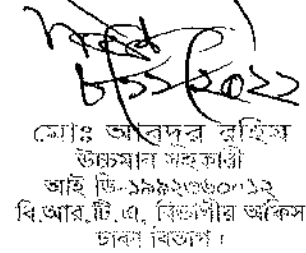 ৮/১১/২০২২
মোঃ আবদুর রহিম
উচ্চমান সহকারী
আই ডি-১৯৯২৩৬০০১২
বি.আর.টি.এ, বিভাগীয় অফিস
ঢাকা বিভাগ।